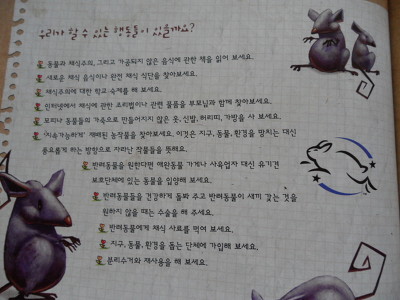 우리가 할 수 있는 행동들이 있을까요?
동물과 채식주의, 그리고 가공되지 않은 음식에 관한 책을 읽어 보세요.
새로운 채식 음식이나 완전 채식 식단을 찾아보세요.
채식주의에 대한 학교 숙제를 해 보세요.
인터넷에서 채식에 관한 조리법이나 관련 물품을 부모님과 함께 찾아보세요.
모피나 동물들의 가죽으로 만들어지지 않은 옷, 신발, 허리띠, 가방을 사 보세요.
'지속가능하게' 재배된 농작물을 찾아보세요. 이것은 지구, 동물, 환경을 망치는 대신
풍요롭게 하는 방향으로 자라난 작물들을 뜻해요.
반려동물을 원한다면 애완동물 가게나 사육업자 대신 유기견
보호단체에 있는 동물을 입양해 보세요.
반려동물들을 건강하게 돌봐 주고 반려동물이 새끼 갖는 것을
원하지 않을 때는 수술을 해 주세요.
반려동물에게 채식 사료를 먹여 보세요.
지구, 동물, 환경을 돕는 단체에 가입해 보세요.
분리수거와 재사용을 해 보세요.